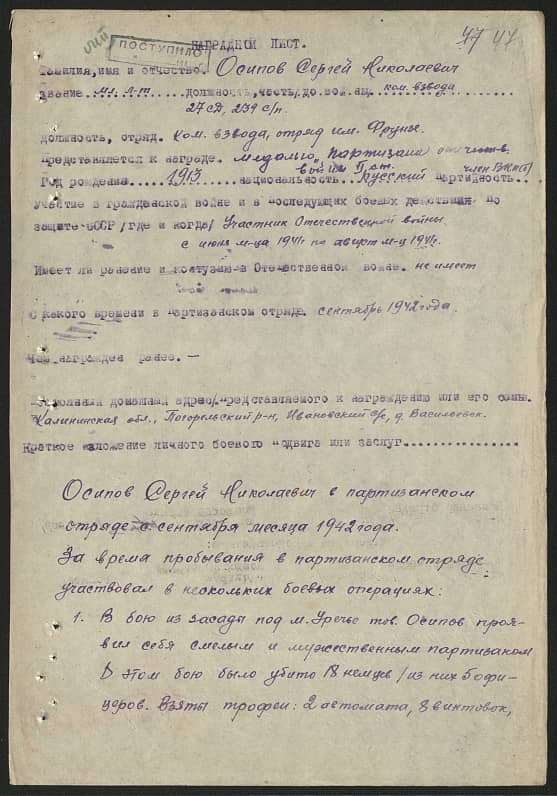 47 47
ПОСТУПИЛО
НАГРАДНОЙ ЛИСТ.
Фамилия, имя и отчество. Осипов Сергей Николаевич
Звание мл. л-т должность, часть/до войны/ ком. взвода
27 СД, 239 с/п.
должность, отряд. Ком. взвода, отряд им. Фрунзе.
Представляется к награде. медалью "Партизан отечеств.
войны" II ст. член ВКП(б)
Год рождения 1913 национальность Русский партийность
Участие в гражданской войне и в последующих боевых действиях по
защите СССР /где и когда/ Участник Отечественной войны
с июня м-ца 1941г по август м-ц 1941г.
Имеет ли ранение и контузию в Отечественной войне. не имеет
С какого времени в партизанском отряде. сентябрь 1942 года.
Чем награжден ранее. —
домашний адрес представляемого к награждению или его семьи.
Калининская обл., Погорельский р-н, Ивановский с/с, д. Василевск.
Краткое изложение личного боевого подвига или заслуг
Осипов Сергей Николаевич в партизанском
отряде с сентября месяца 1942 года.
За время пробывания в партизанском отряде
участвовал в нескольких боевых операциях:
1. В бою из засады под м. Уречье тов. Осипов проя-
вил себя смелым и мужественным партизаном
В этом бою было убито 18 немцев /из них 5 офи-
церов. Взяты трофеи: 2 автомата, 8 винтовок,